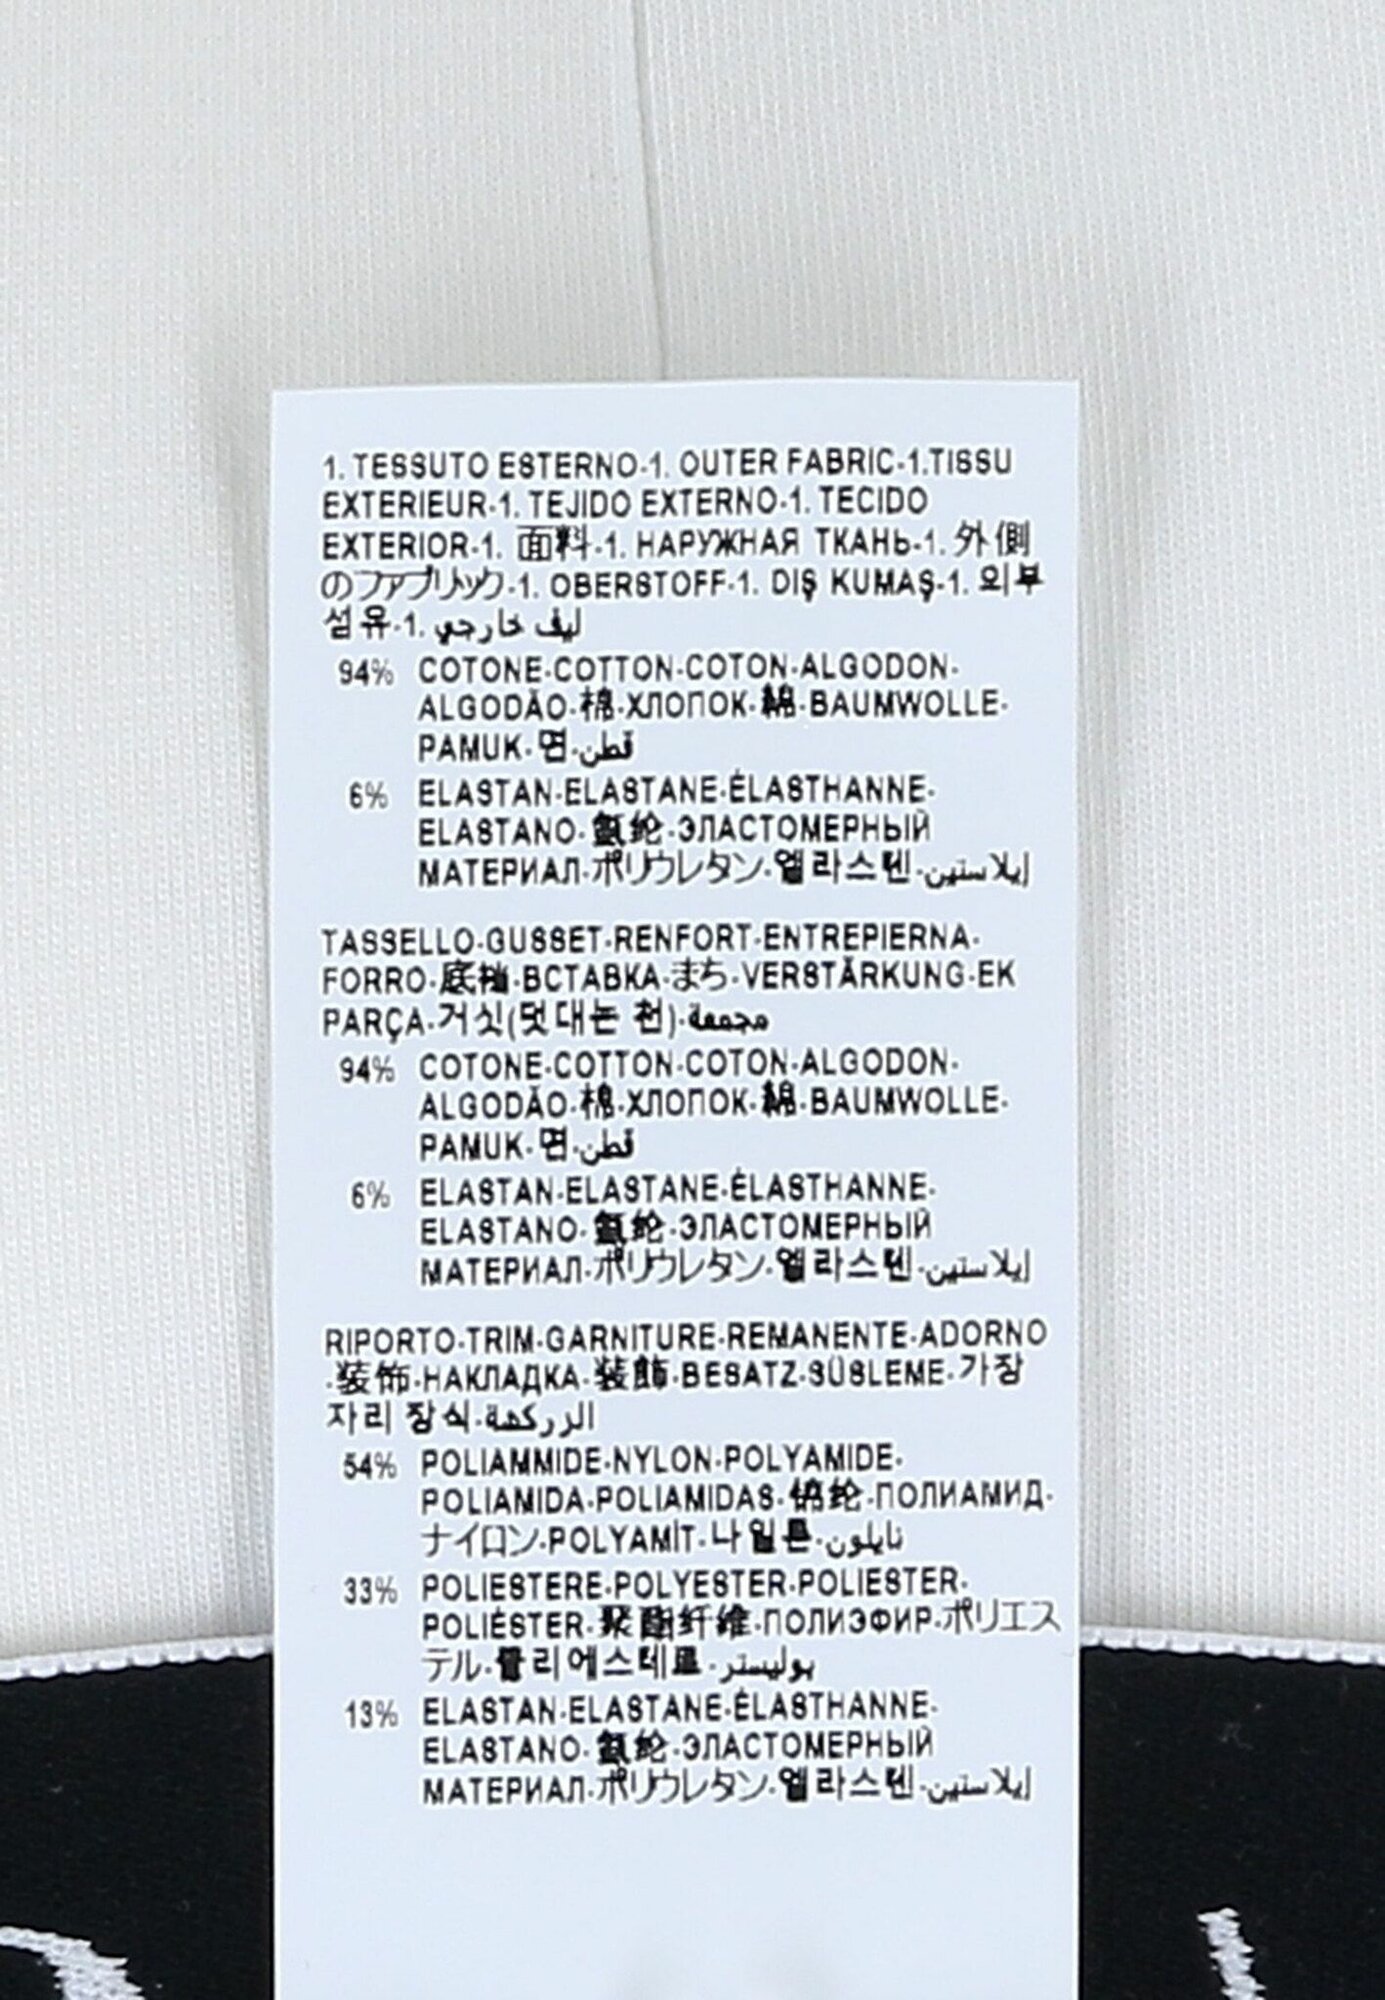 1. TESSUTO ESTERNO-1. OUTER FABRIC-1.TISSU
EXTERIEUR-1. TEJIDO EXTERNO-1. TECIDO
EXTERIOR-1. 面料-1. НАРУЖНАЯ ТКАНЬ-1. 外側
のファブリック-1. OBERSTOFF-1. DIŞ KUMAŞ-1. 외부
섬유-1. ليف خارجي
94% COTONE-COTTON-COTON-ALGODON-
ALGODÃO-棉-ХЛОПОК-綿-BAUMWOLLE-
PAMUK-면-قطن
6% ELASTAN-ELASTANE-ÉLASTHANNE-
ELASTANO-氨纶-ЭЛАСТОМЕРНЫЙ
МАТЕРИАЛ-ポリウレタン-엘라스텐-إيلاستين
TASSELLO-GUSSET-RENFORT-ENTREPIERNA-
FORRO-底裆-ВСТАВКА-まち-VERSTÄRKUNG-EK
PARÇA-거싯(덧대는 천)-مجمعة
94% COTONE-COTTON-COTON-ALGODON-
ALGODÃO-棉-ХЛОПОК-綿-BAUMWOLLE-
PAMUK-면-قطن
6% ELASTAN-ELASTANE-ÉLASTHANNE-
ELASTANO-氨纶-ЭЛАСТОМЕРНЫЙ
МАТЕРИАЛ-ポリウレタン-엘라스텐-إيلاستين
RIPORTO-TRIM-GARNITURE-REMANENTE-ADORNO
-装饰-НАКЛАДКА-装飾-BESATZ-SÜSLEME-가장
자리 장식-الزركشة
54% POLIAMMIDE-NYLON-POLYAMIDE-
POLIAMIDA-POLIAMIDAS-锦纶-ПОЛИАМИД-
ナイロン-POLYAMİT-나일론-نايلون
33% POLIESTERE-POLYESTER-POLIESTER-
POLIÉSTER-聚酯纤维-ПОЛИЭФИР-ポリエス
テル-폴리에스테르-بوليستر
13% ELASTAN-ELASTANE-ÉLASTHANNE-
ELASTANO-氨纶-ЭЛАСТОМЕРНЫЙ
МАТЕРИАЛ-ポリウレタン-엘라스텐-إيلاستين